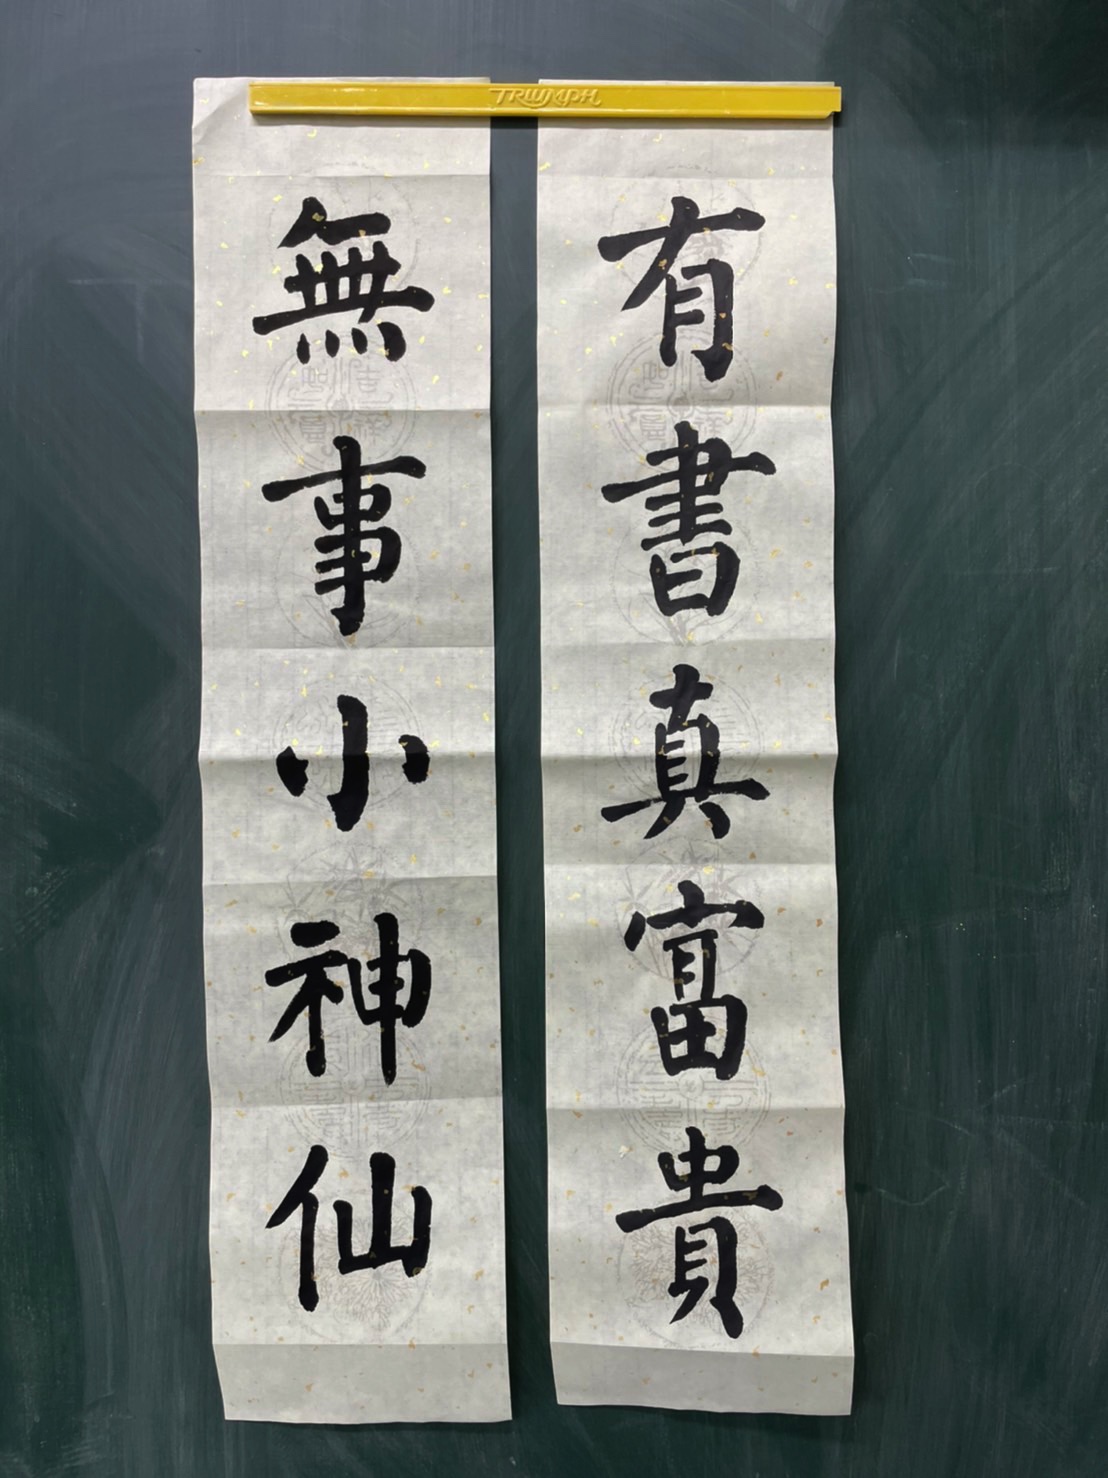 TRIUMPH
有書真富貴
無事小神仙